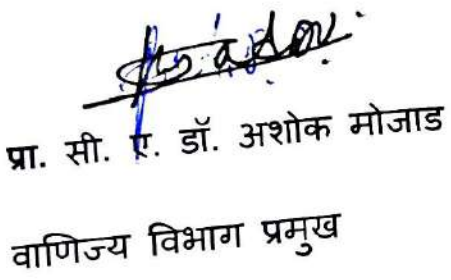 प्रा. सी. ए. डॉ. अशोक मोजाड
वाणिज्य विभाग प्रमुख